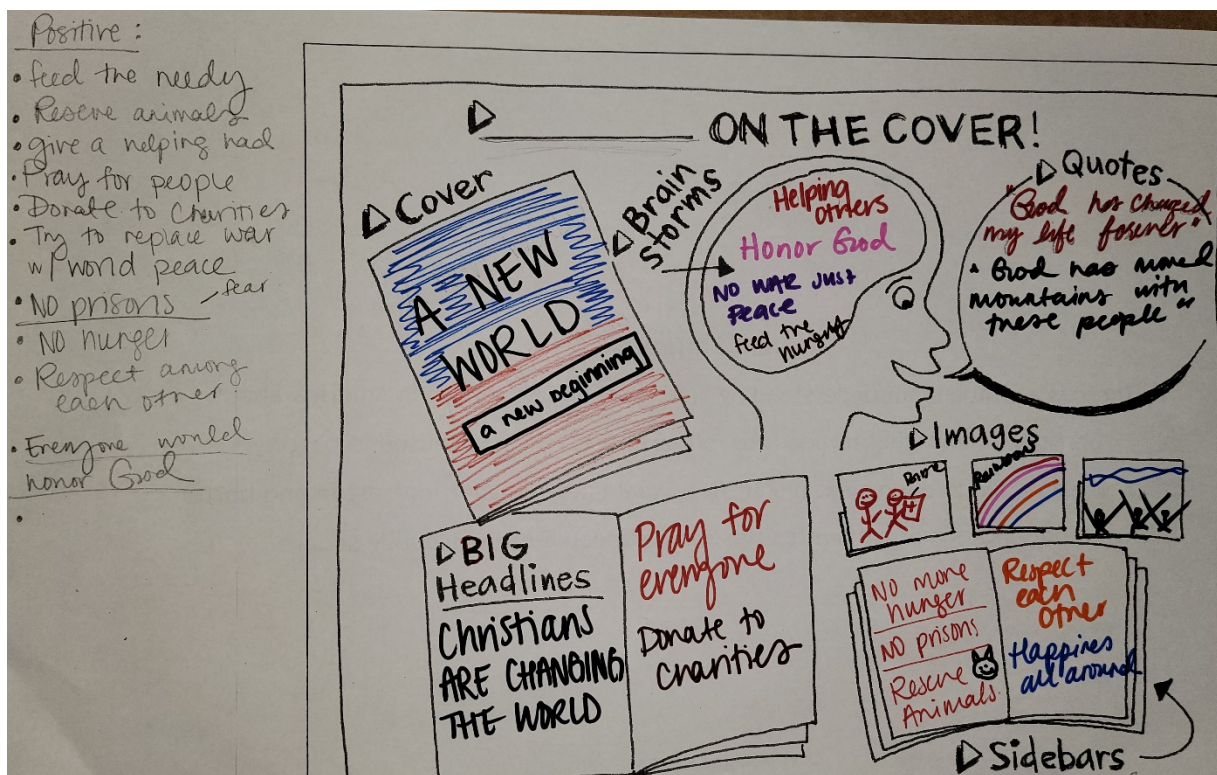 Positive :
• feed the needy
• Rescue animals
• give a helping had
• Pray for people
• Donate to Charities
• Try to replace war
w/ world peace
• NO prisons - fear
• NO hunger
• Respect among
each other
• Everyone would
honor God
•
ON THE COVER!
Cover
A NEW
WORLD
a new beginning
Brain
storms
Helping
others
Honor God
NO WAR JUST
Peace
feed the
hungry
Quotes
"God has changed
my life forever"
"God has moved
mountains with
these people"
Images
Rainbows
BIG
Headlines
Christians
ARE CHANGING
THE WORLD
Pray for
everyone
Donate to
charities
NO more
hunger
NO prisons
Rescue
Animals
Respect
each
other
Happines
all around
Sidebars